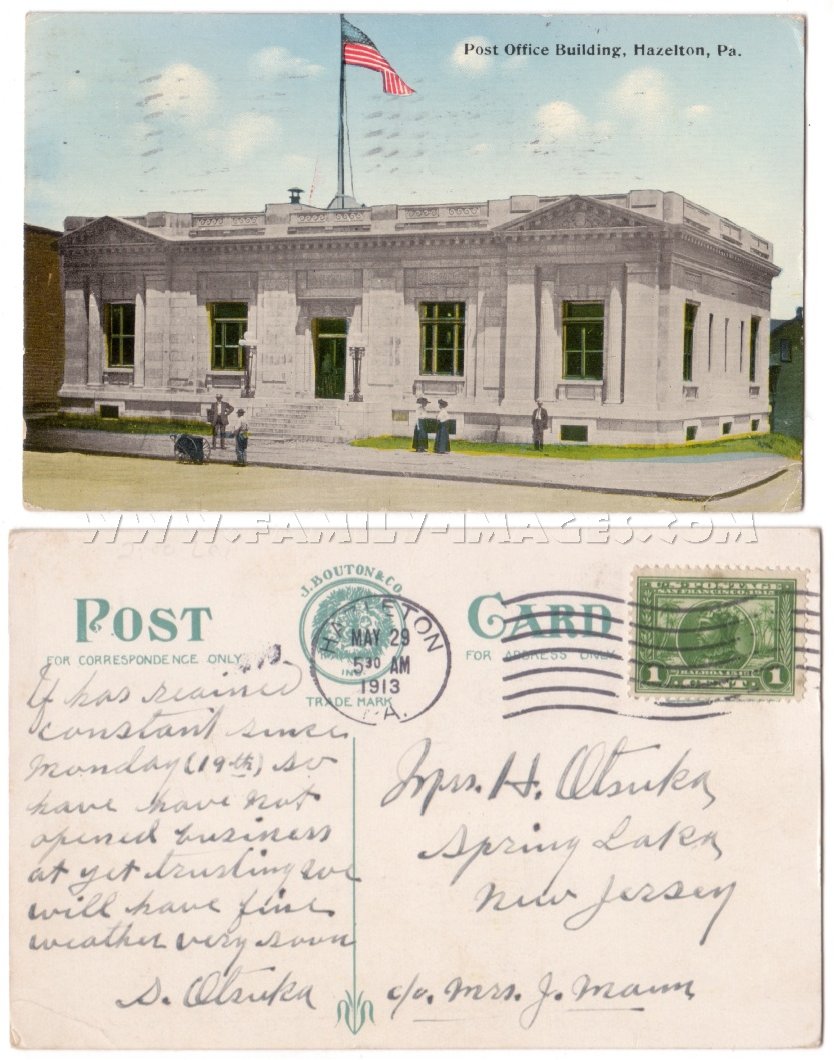 Post Office Building, Hazelton, Pa.
WWW.FAMILY-IMAGES.COM
POST CARD
J. BOUTON & CO.
TRADE MARK
FOR CORRESPONDENCE ONLY
FOR ADDRESS ONLY
HAZLETON
MAY 29
5 30 AM
1913
PA.
U.S. POSTAGE
SAN FRANCISCO 1915
BALBOA 1513
1 CENT 1
It has reained
constant since
Monday (19th) so
have have not
opened business
at yet trusting we
will have fine
weather very soon
S. Otsuka
Mrs. H. Otsuka
Spring Laka
New Jersey
c/o. Mrs. J. Mann